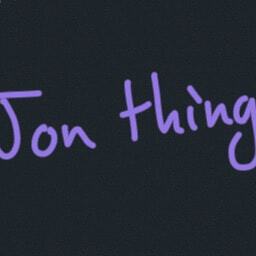 Jon thing